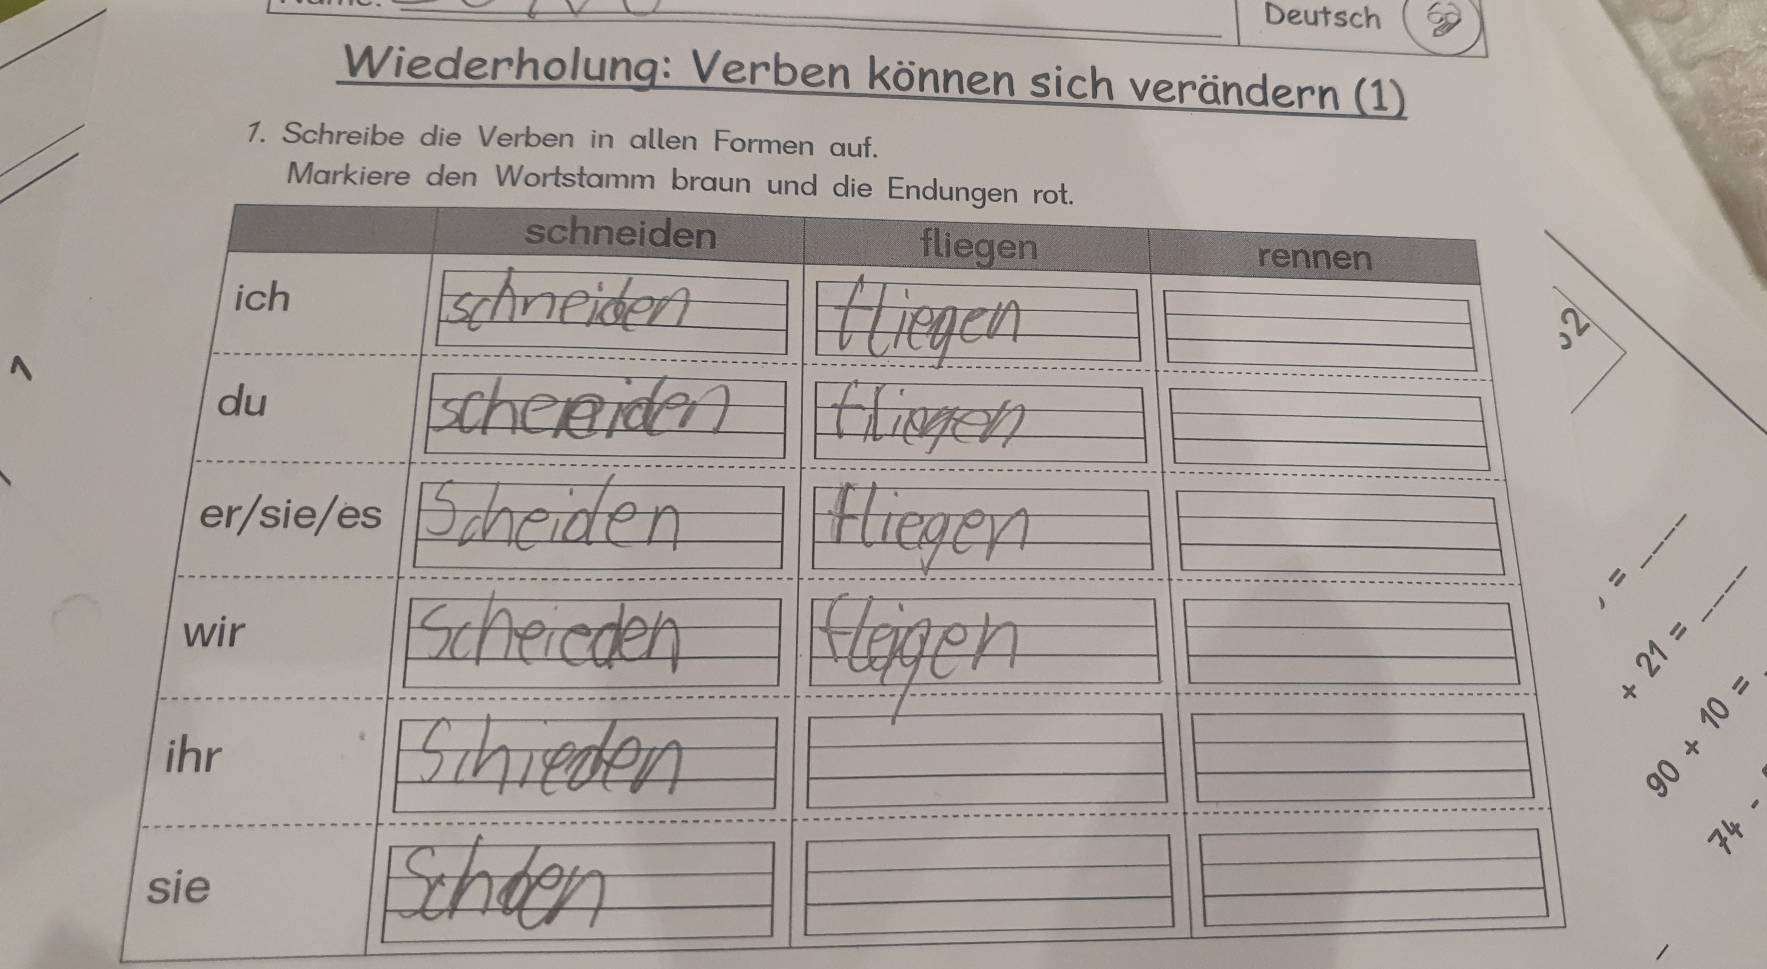 Deutsch
Wiederholung: Verben können sich verändern (1)
1. Schreibe die Verben in allen Formen auf.
Markiere den Wortstamm braun und die Endungen rot.
schneiden fliegen rennen
ich schneiden fliegen
du fliegen
er/sie/es Scheiden fliegen
wir Scheieden flegen
ihr Schieden
sie Schden
32
, =
+ 21 =
90 + 10 =
74 -
1